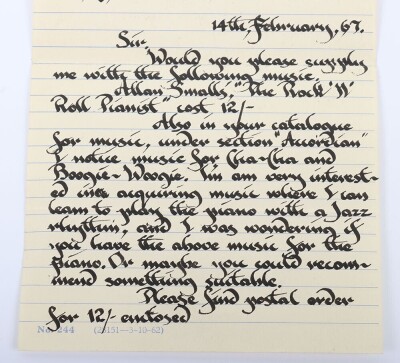 14th, February, 67.
Sir,
Would you please supply
me with the following music.
Allan Smalls, "The Rock 'N'
Roll Pianist" cost 12/-
Also in your catalogue
for music, under section "Accordian"
I notice music for Cha-Cha and
Boogie-Woogie. I'm am very interest-
ed in acquiring music where I can
learn to play the piano with a Jazz
rhythm, and I was wondering if
you have the above music for the
piano. Or maybe you could recom-
mend something suitable.
Please find postal order
for 12/- enclosed
No. 244 (26151—3-10-62)